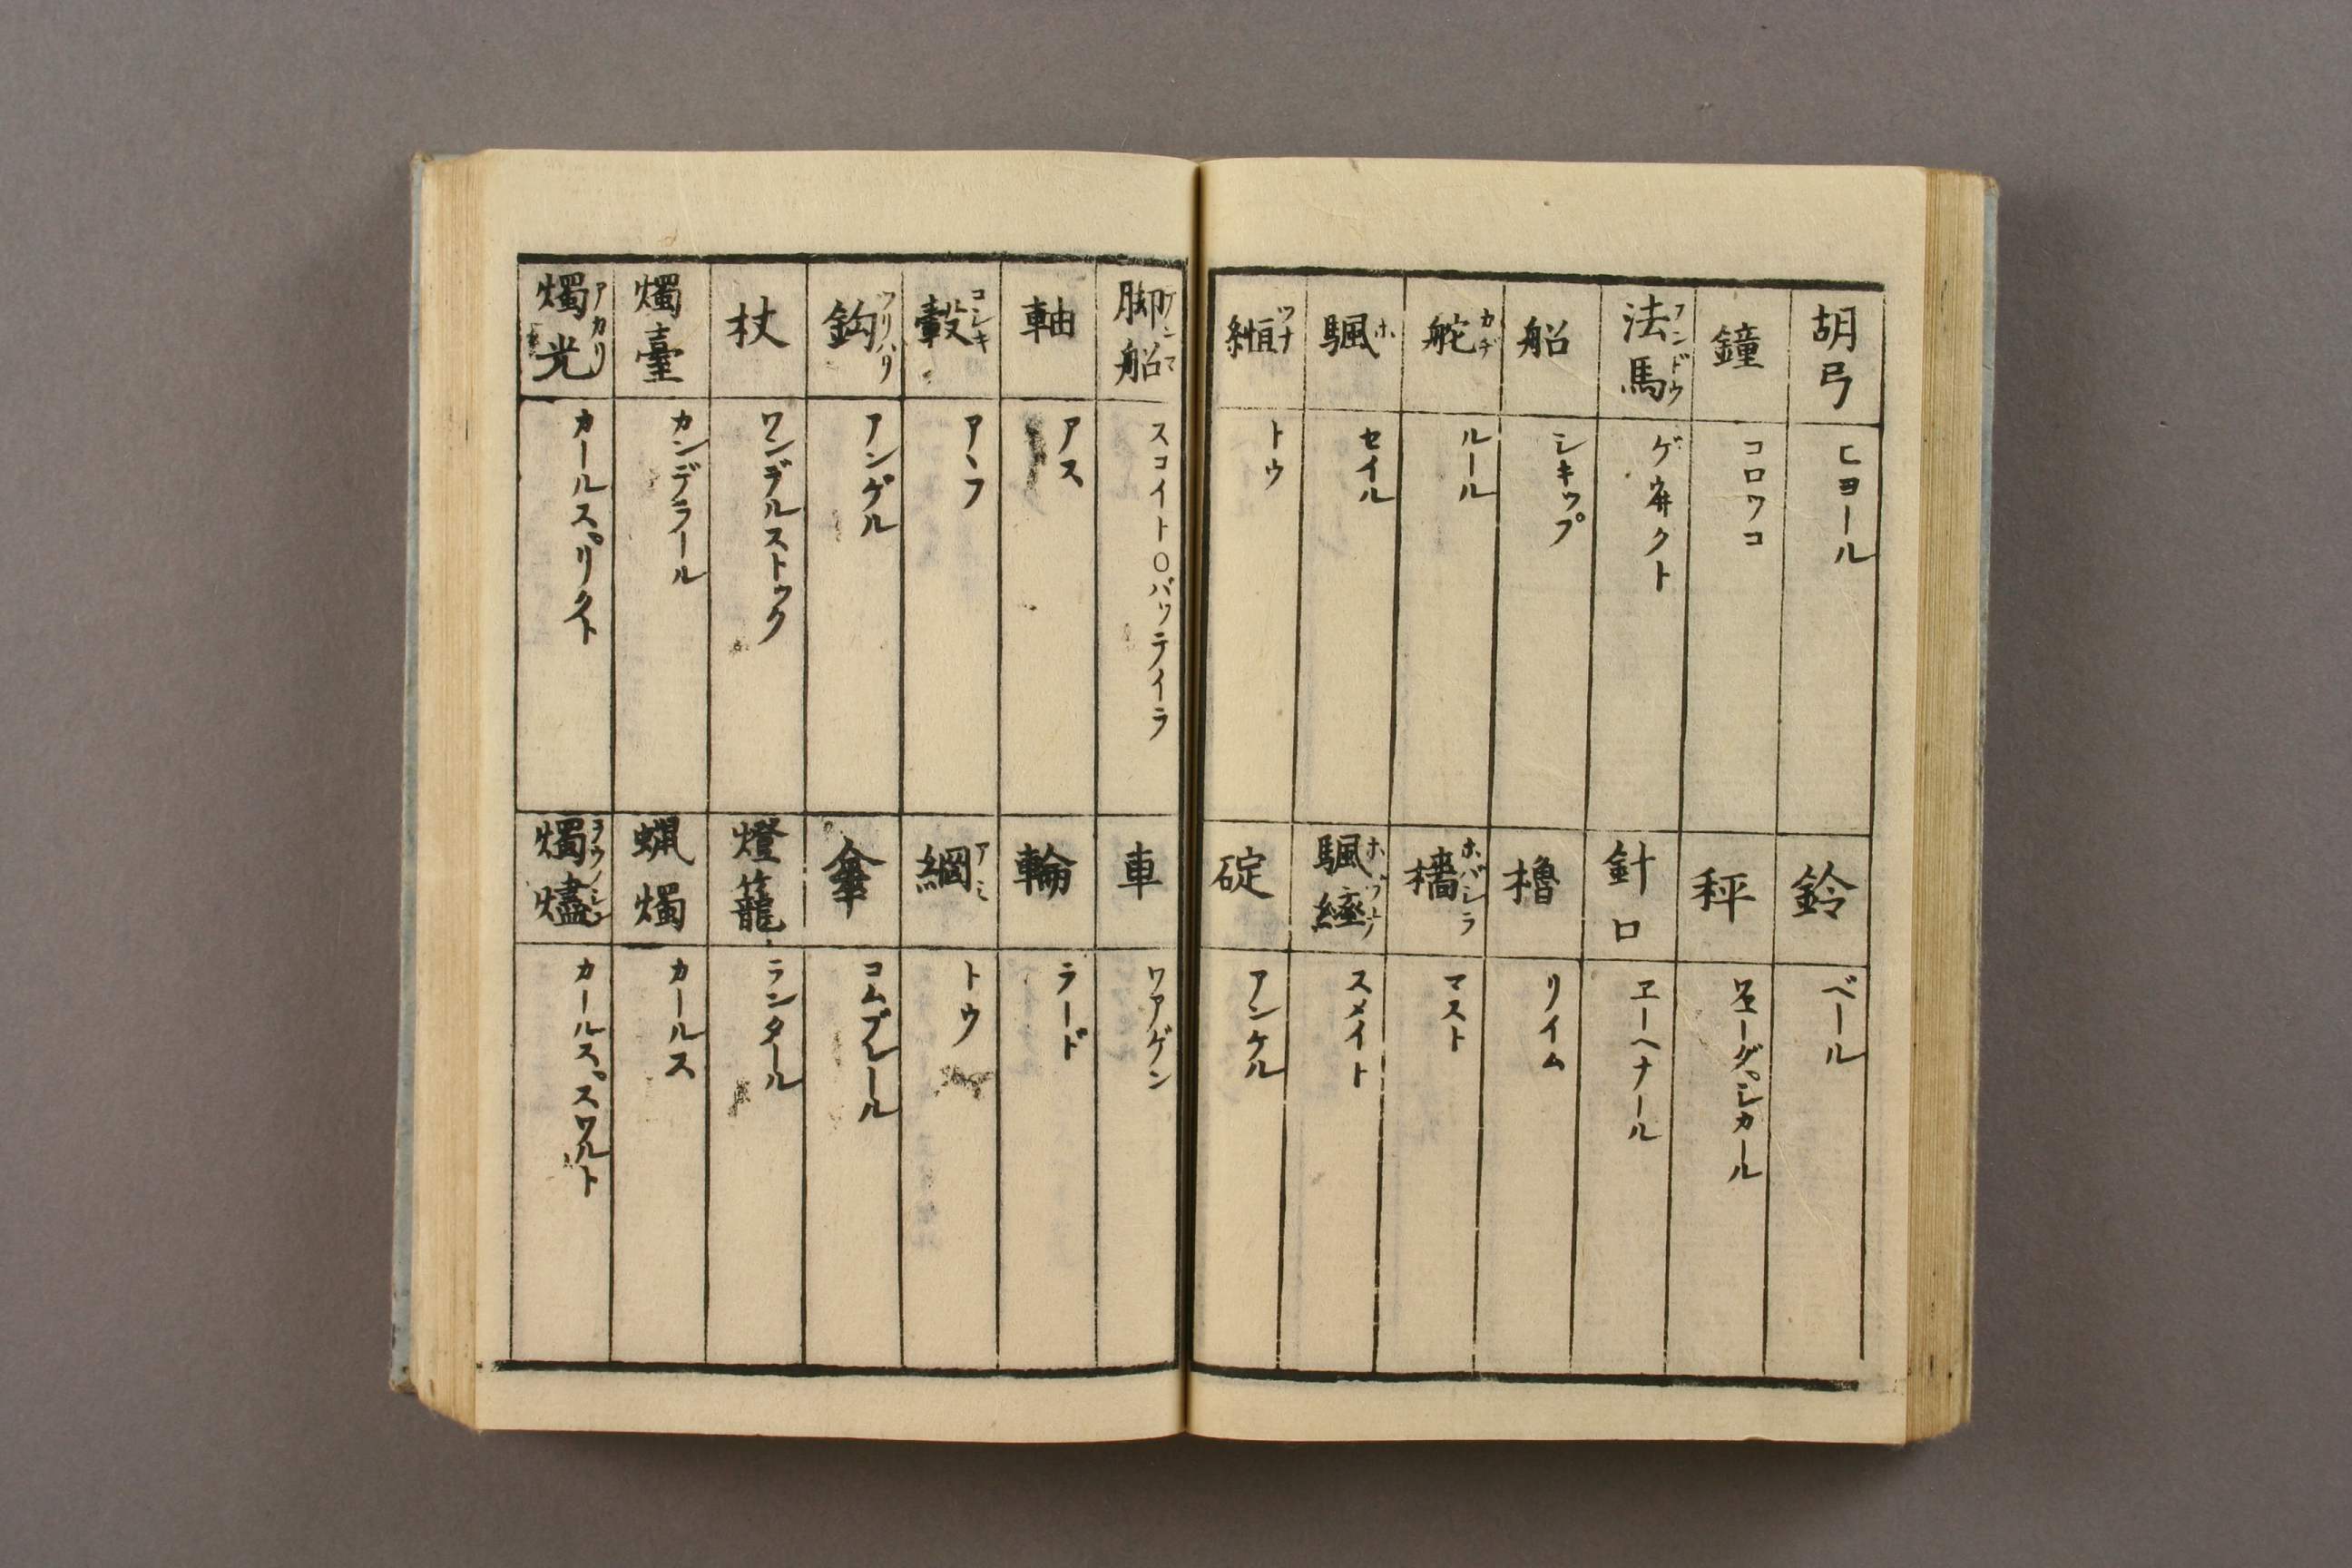 胡弓 ヒヨール
鈴 ベール
鐘 コロワコ
秤
法馬 フンドウ
針口 ヱーヘナール
船 シキップ
櫓 リイム
舵 カヂ ルール
檣 ホバシラ マスト
颿 ホ セイル
颿 スメイト
縆 ツナ トウ
碇 アンケル
脚船 スコイト〇バッテイラ
車 ワアゲン
軸 アス
輪 ラード
轂 コシキ アヽフ
網 アミ トウ
鈎 ツリバリ アンゲル
傘 コムブレール
杖 ワンデルストック
燈籠 ランタール
燭臺 カンデラール
蝋燭 カールス
燭光 アカリ カールス゚リクト
燭燼 ラウノシン カールス゚スワルト